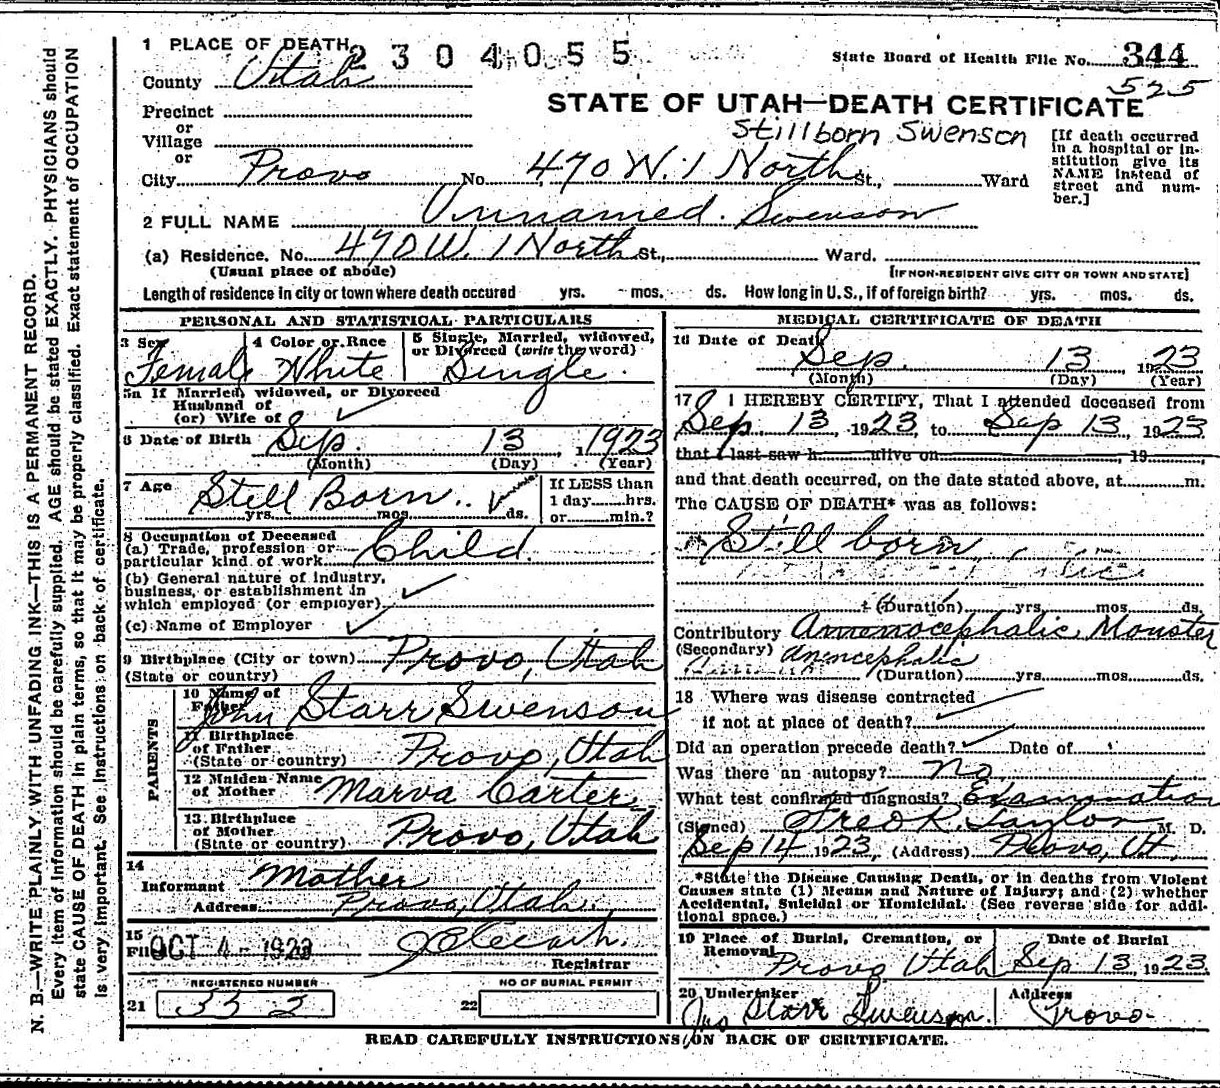 N. B.—WRITE PLAINLY WITH UNFADING INK—THIS IS A PERMANENT RECORD.
Every item of information should be carefully supplied. AGE should be stated EXACTLY. PHYSICIANS should
state CAUSE OF DEATH in plain terms, so that it may be properly classified. Exact statement of OCCUPATION
is very important. See instructions on back of certificate.
1 PLACE OF DEATH
2304055
State Board of Health File No. 344
525
County Utah
STATE OF UTAH—DEATH CERTIFICATE
Stillborn Swenson
Precinct
or
Village
or
City Provo No. 470 W. 1 North St., Ward
[If death occurred
in a hospital or in-
stitution give its
NAME instead of
street and num-
ber.]
2 FULL NAME Unnamed. Swenson
(a) Residence. No. 470 W. 1 North St., Ward.
(Usual place of abode)
[IF NON-RESIDENT GIVE CITY OR TOWN AND STATE]
Length of residence in city or town where death occured yrs. mos. ds. How long in U. S., if of foreign birth? yrs. mos. ds.
PERSONAL AND STATISTICAL PARTICULARS
3 Sex Female
4 Color or Race White
5 Single, Married, widowed,
or Divorced (write the word)
Single.
5a If Married, widowed, or Divorced
Husband of
(or) Wife of
6 Date of Birth Sep. 13, 1923
(Month) (Day) (Year)
7 Age Still Born..
yrs. mos. ds.
If LESS than
1 day......hrs.
or......min.?
8 Occupation of Deceased
(a) Trade, profession or
particular kind of work Child
(b) General nature of industry,
business, or establishment in
which employed (or employer)
(c) Name of Employer
9 Birthplace (City or town) Provo, Utah
(State or country)
PARENTS
10 Name of
Father John Starr Swenson
11 Birthplace
of Father
(State or country) Provo, Utah
12 Maiden Name
of Mother Marva Carter
13 Birthplace
of Mother
(State or country) Provo, Utah
14
Informant Mother
Address Provo, Utah.
15
Filed OCT 4 - 1923
Registrar
REGISTERED NUMBER
21 352
NO OF BURIAL PERMIT
22
MEDICAL CERTIFICATE OF DEATH
16 Date of Death Sep. 13, 1923
(Month) (Day) (Year)
17 I HEREBY CERTIFY, That I attended deceased from
Sep. 13, 1923, to Sep 13, 1923
that I last saw h alive on, 19
and that death occurred, on the date stated above, at m.
The CAUSE OF DEATH* was as follows:
Still born
(Duration) yrs. mos. ds.
Contributory Amenocephalic Monster
(Secondary) Anencephalic
(Duration) yrs. mos. ds.
18 Where was disease contracted
if not at place of death?
Did an operation precede death? Date of
Was there an autopsy? No
What test confirmed diagnosis? Examination
(Signed) Fred R. Taylor M. D.
Sep 14 1923, (Address) Provo, Ut.
*State the Disease Causing Death, or in deaths from Violent
Causes state (1) Means and Nature of Injury; and (2) whether
Accidental, Suicidal or Homicidal. (See reverse side for addi-
tional space.)
19 Place of Burial, Cremation, or
Removal Provo Utah
Date of Burial
Sep 13, 1923
20 Undertaker
Jno Starr Swenson.
Address
Provo.
READ CAREFULLY INSTRUCTIONS ON BACK OF CERTIFICATE.